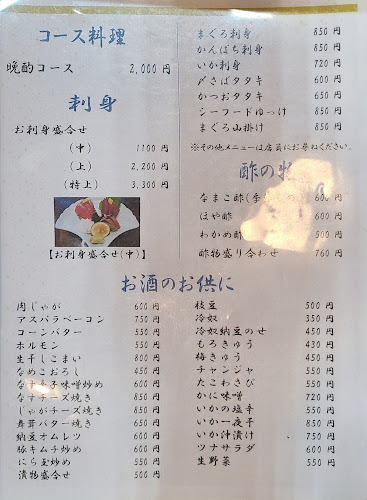 コース料理
晩酌コース 2,000円
刺身
お刺身盛合せ
(中) 1100円
(上) 2,200円
(特上) 3,300円
【お刺身盛合せ(中)】
まぐろ刺身 850円
かんぱち刺身 850円
いか刺身 720円
〆さばタタキ 600円
かつおタタキ 650円
シーフードゆっけ 850円
まぐろ山掛け 850円
※その他メニューは店員にお尋ねください。
酢の物
なまこ酢(季 600円
ほや酢 600円
わかめ酢 500円
酢物盛り合わせ 760円
お酒のお供に
肉じゃが 600円
アスパラベーコン 750円
コーンバター 550円
ホルモン 550円
生干しこまい 800円
なめこおろし 450円
なす辛子味噌炒め 650円
なすチーズ焼き 850円
じゃがチーズ焼き 850円
舞茸バター焼き 650円
納豆オムレツ 600円
豚キムチ炒め 600円
にら玉炒め 550円
漬物盛合せ 500円
枝豆 500円
冷奴 350円
冷奴納豆のせ 450円
もろきゅう 430円
梅きゅう 450円
チャンジャ 550円
たこわさび 550円
かに味噌 720円
いかの塩辛 550円
いか一夜干 850円
いか沖漬け 750円
ツナサラダ 600円
生野菜 550円